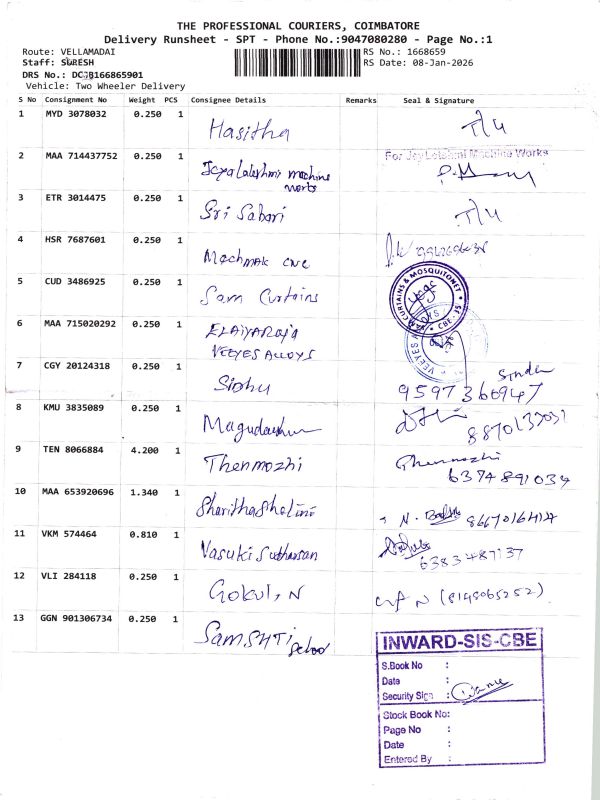 THE PROFESSIONAL COURIERS, COIMBATORE
Delivery Runsheet - SPT - Phone No.:9047080280 - Page No.:1
Route: VELLAMADAI
RS No.: 1668659
Staff: SURESH
RS Date: 08-Jan-2026
DRS No.: DCJB166865901
Vehicle: Two Wheeler Delivery
S No Consignment No Weight PCS Consignee Details Remarks Seal & Signature
1 MYD 3078032 0.250 1 Hasitha
2 MAA 714437752 0.250 1 Jeyalakshmi machine works
For Jey Lakshmi Machine Works
3 ETR 3014475 0.250 1 Sri Sabari
4 HSR 7687601 0.250 1 Mechmak cnc
5 CUD 3486925 0.250 1 Sam Curtains
CURTAINS & MOSQUITONET
CBE-35
6 MAA 715020292 0.250 1 ELAIYARaja
VEEYES ALLOYS
7 CGY 20124318 0.250 1 Sindhu
9597360947
8 KMU 3835089 0.250 1
9 TEN 8066884 4.200 1 Thenmozhi
Thenmozhi
6374891034
10 MAA 653920696 1.340 1 Sharitha Shalini
11 VKM 574464 0.810 1 Vasuki Sutharsan
6383487137
12 VLI 284118 0.250 1 Gokul, N
N (8148065252)
13 GGN 901306734 0.250 1 Samshti School
INWARD-SIS-CBE
S.Book No :
Date :
Security Sign :
Stock Book No:
Page No :
Date :
Entered By :